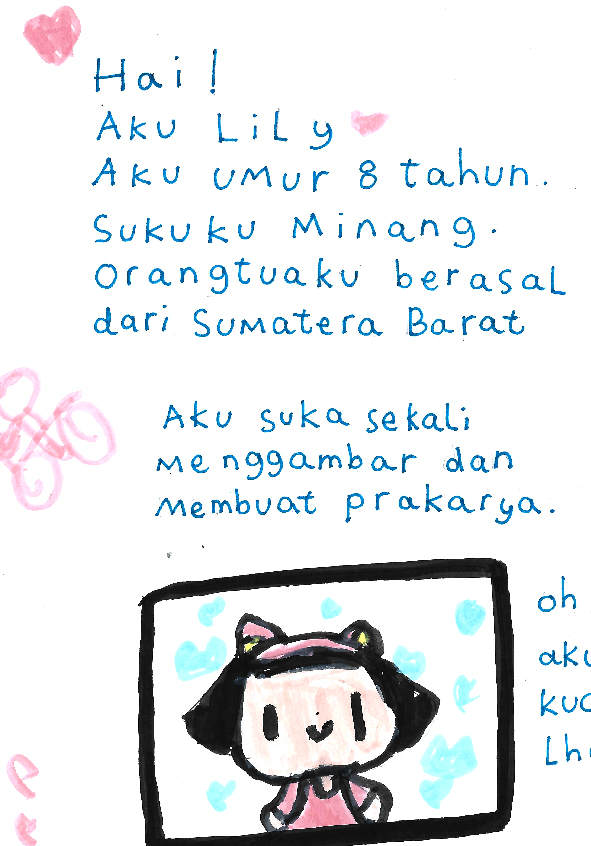 Hai!
Aku Lily
Aku umur 8 tahun.
Sukuku Minang.
Orangtuaku berasal
dari Sumatera Barat
Aku suka sekali
menggambar dan
membuat prakarya.
oh